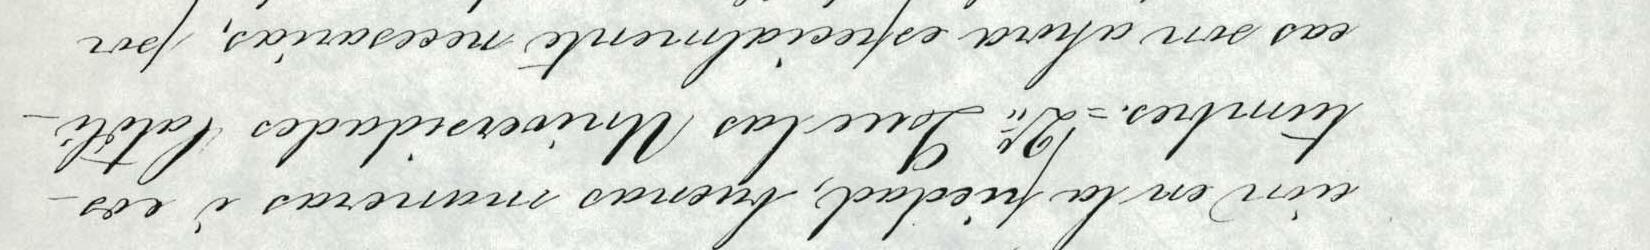 ción en la piedad, buenas maneras i cos-
tumbres.=2ª." Que las Universidades Católi-
cas son ahora especialmente necesarias, por